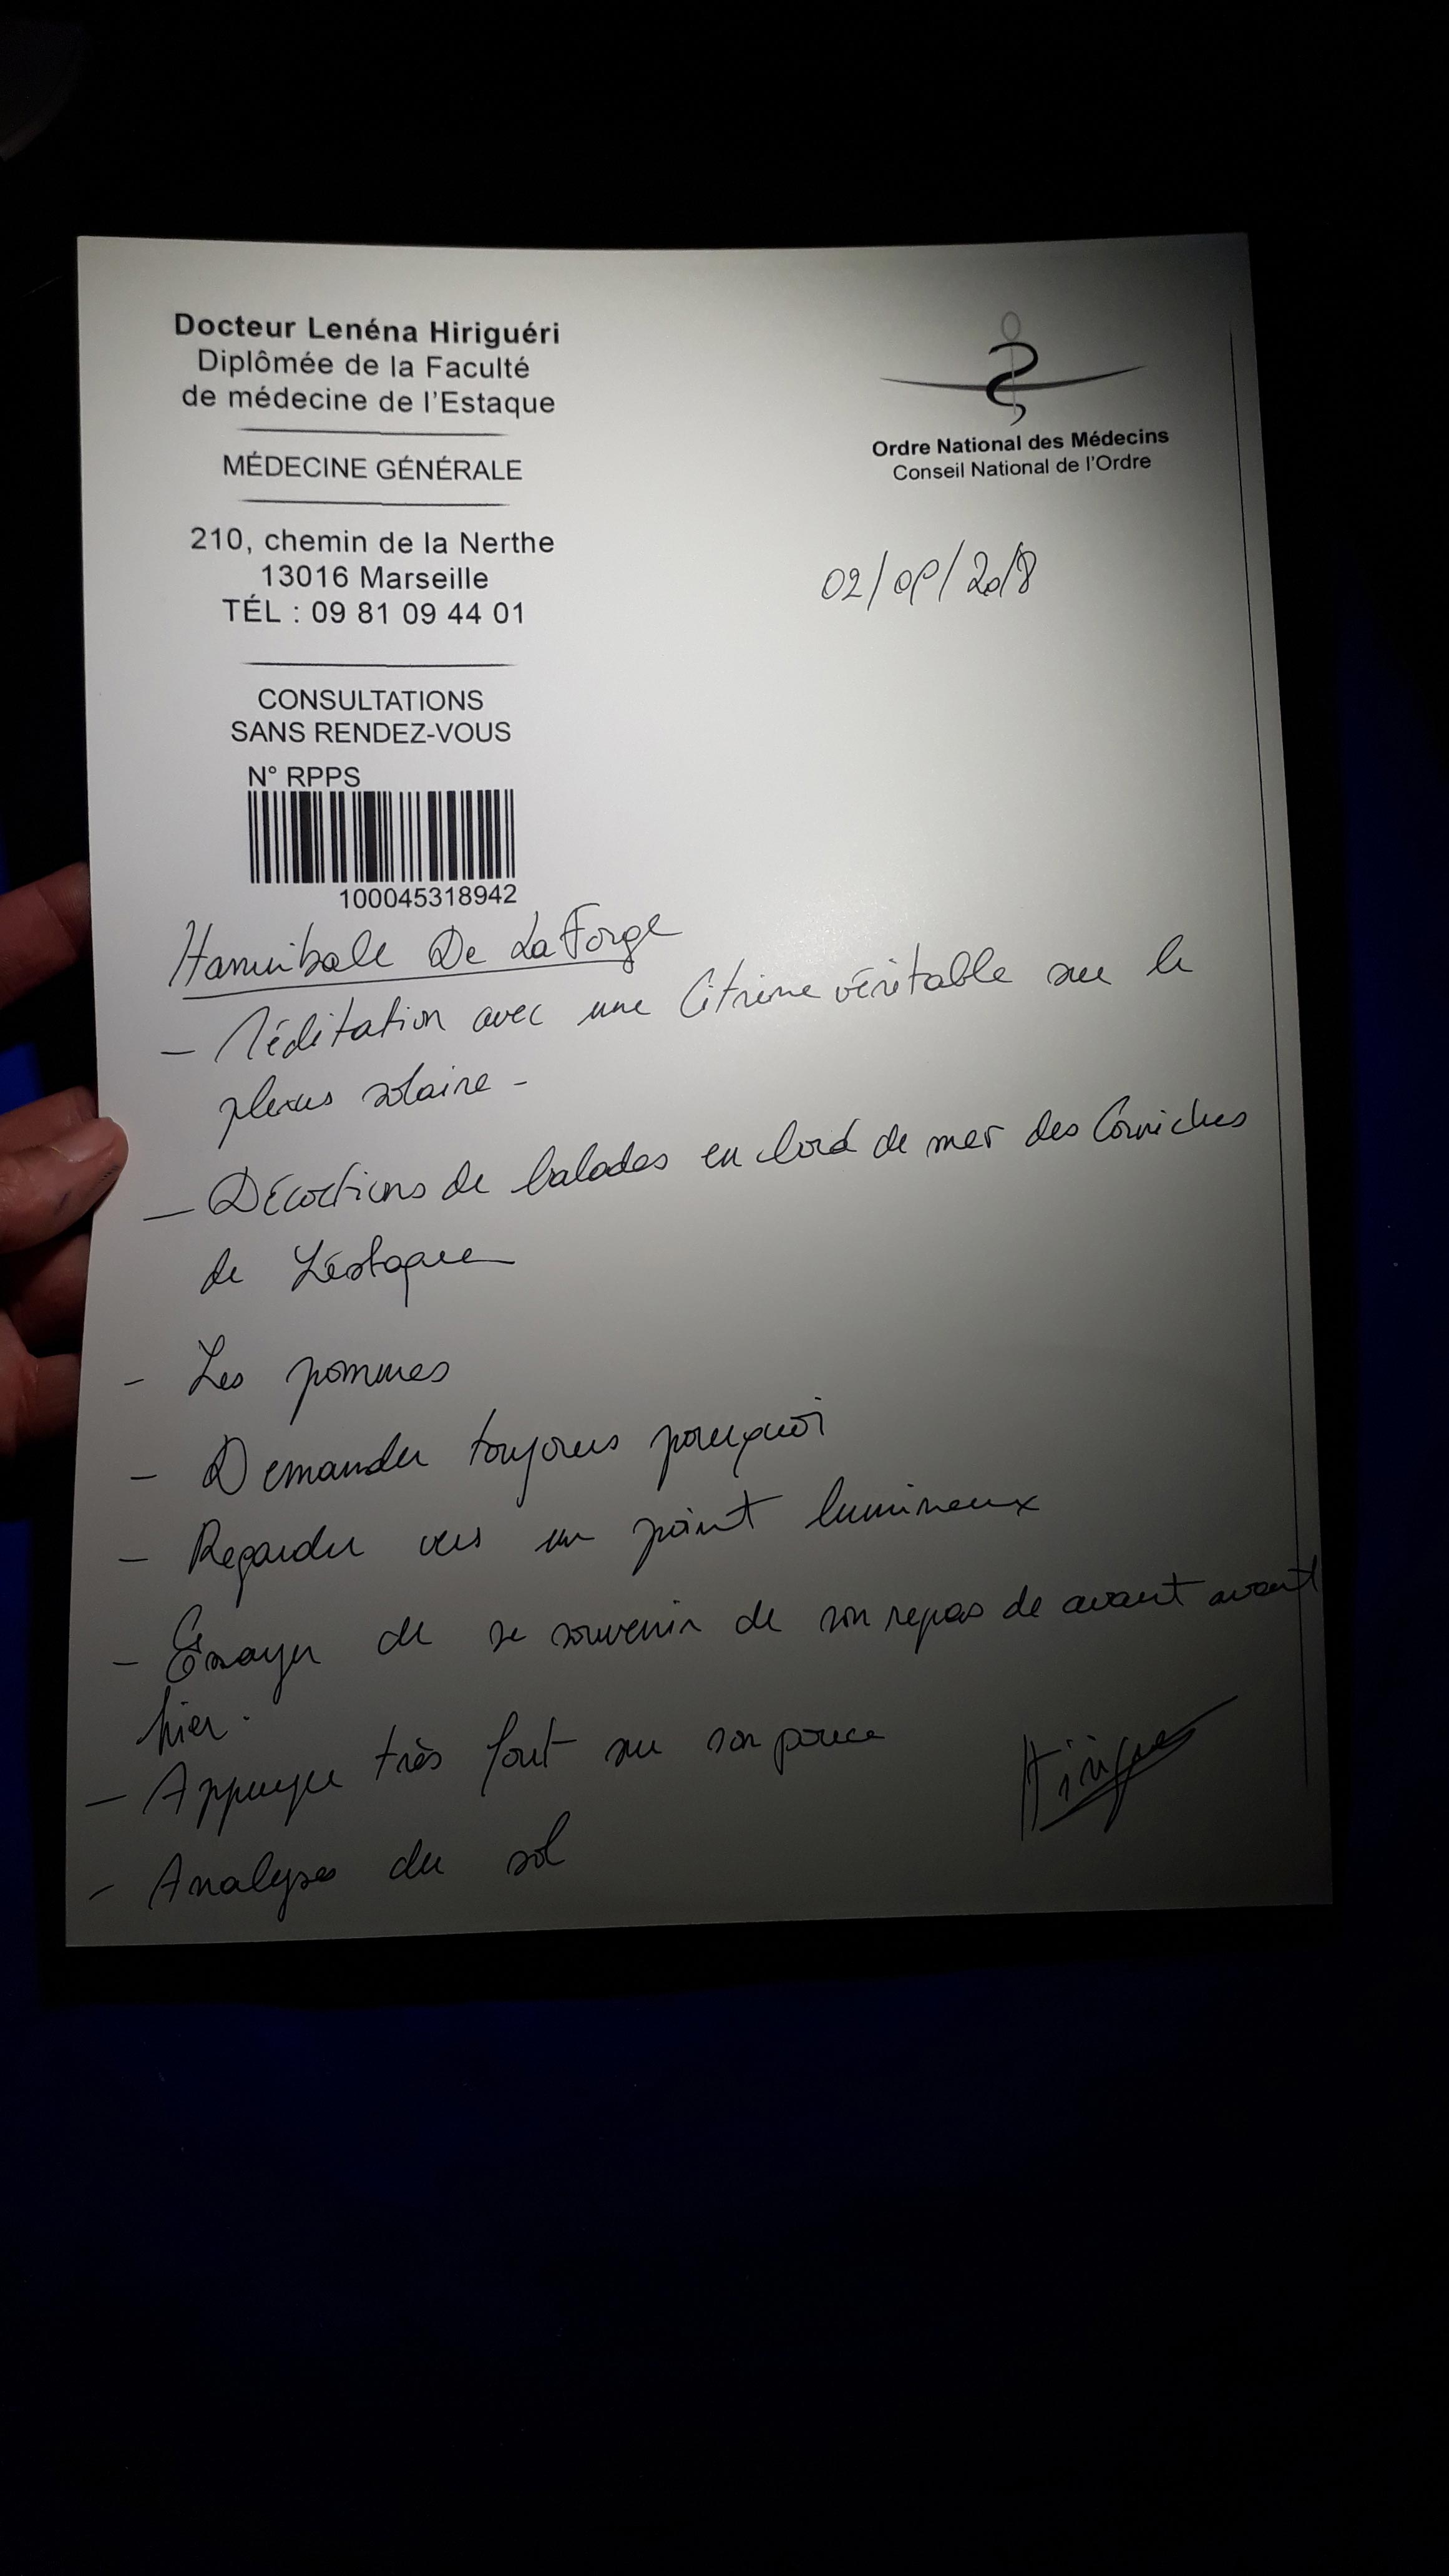 Docteur Lenéna Hiriguéri
Diplômée de la Faculté
de médecine de l'Estaque
MÉDECINE GÉNÉRALE
210, chemin de la Nerthe
13016 Marseille
TÉL : 09 81 09 44 01
CONSULTATIONS
SANS RENDEZ-VOUS
N° RPPS
100045318942
Ordre National des Médecins
Conseil National de l'Ordre
02/09/2018
Hannibale De La Forge
- Méditation avec une Citrine véritable sur le
plexus solaire -
- Décoctions de balades en bord de mer des Corniches
de Lestaque
- Les pommes
- Demander toujours pourquoi
- Regarder vers un point lumineux
- Essayer de se souvenir de son repas de avant avant
hier.
- Appuyer très fort sur son pouce
- Analyses du sol